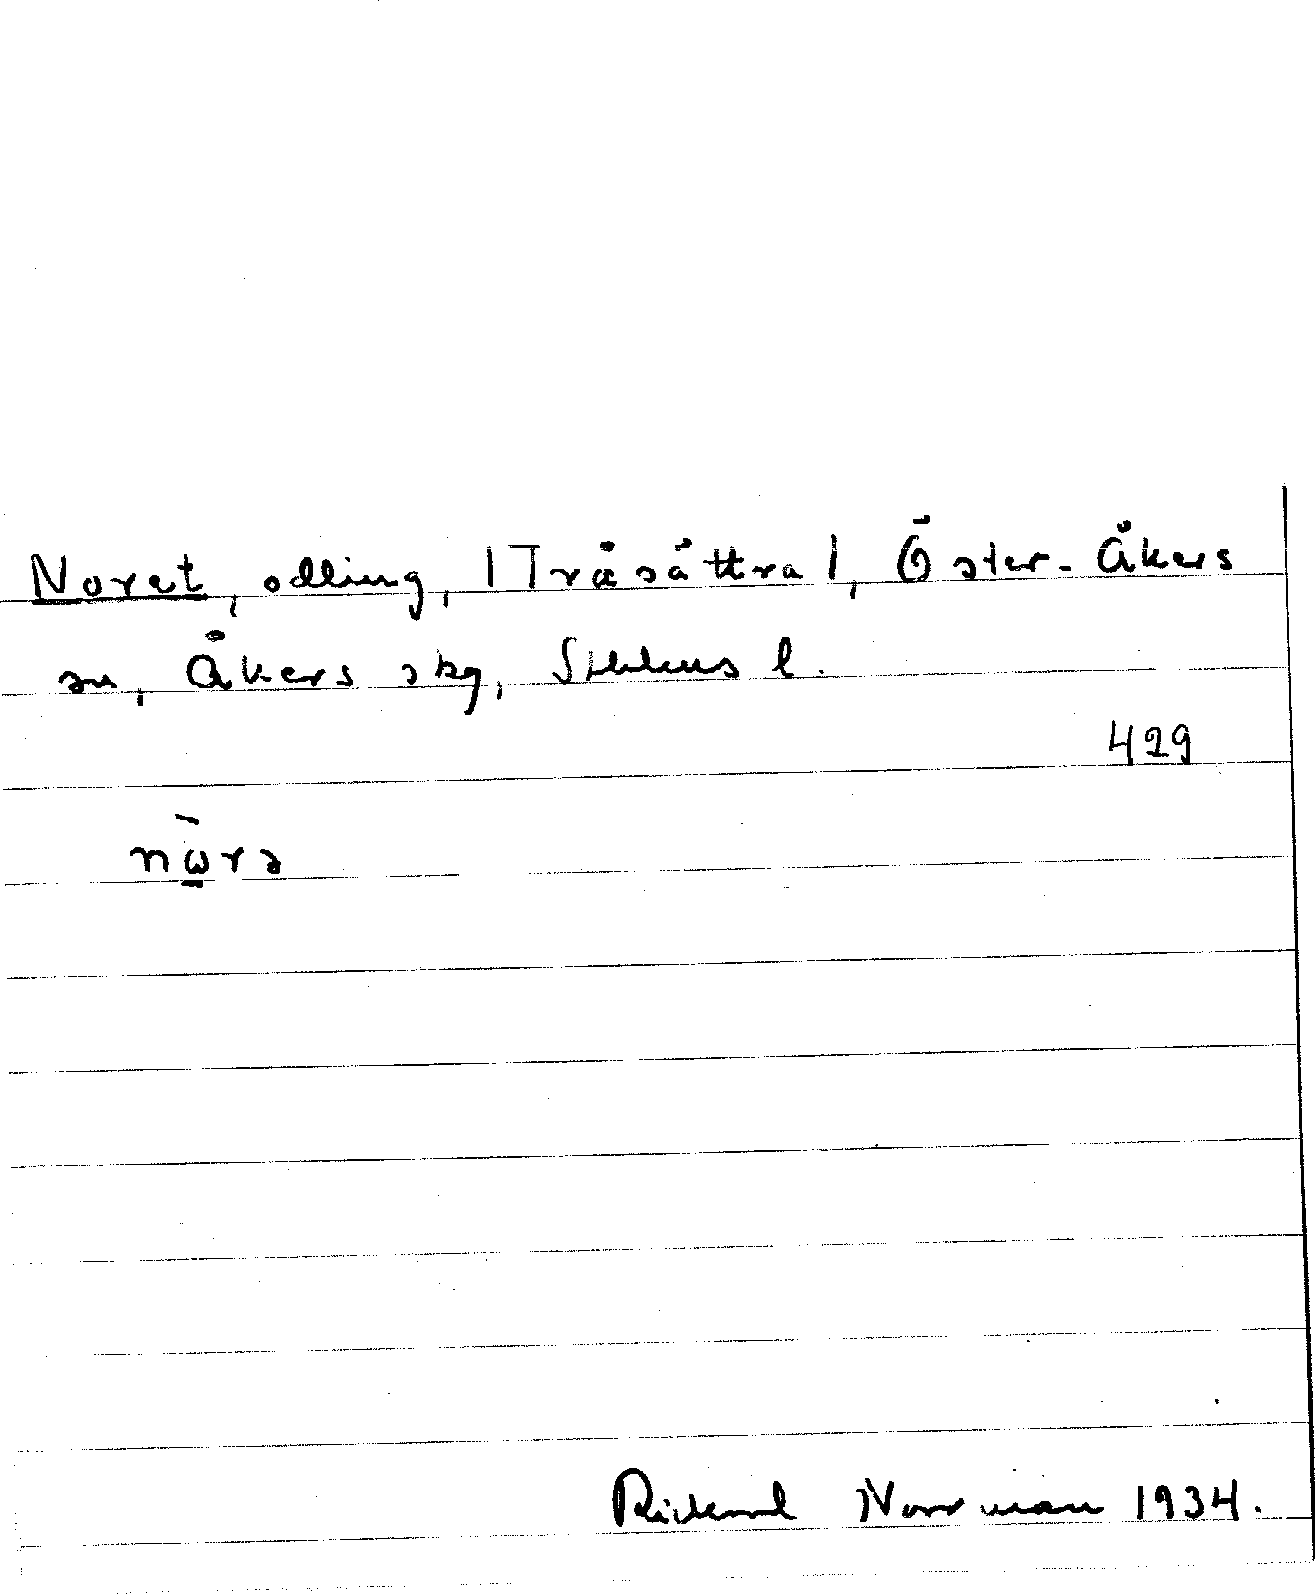 Noret, odling, |Träsättra|, Öster-Åkers
sn, Åkers skg, Sthlms l.
429
nὼ̠rə
Rickard Norrman 1934.